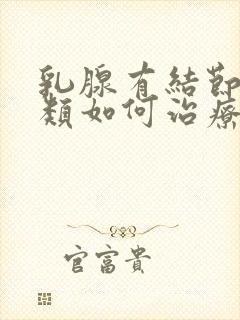 乳腺有結節
類如何治療
官富貴